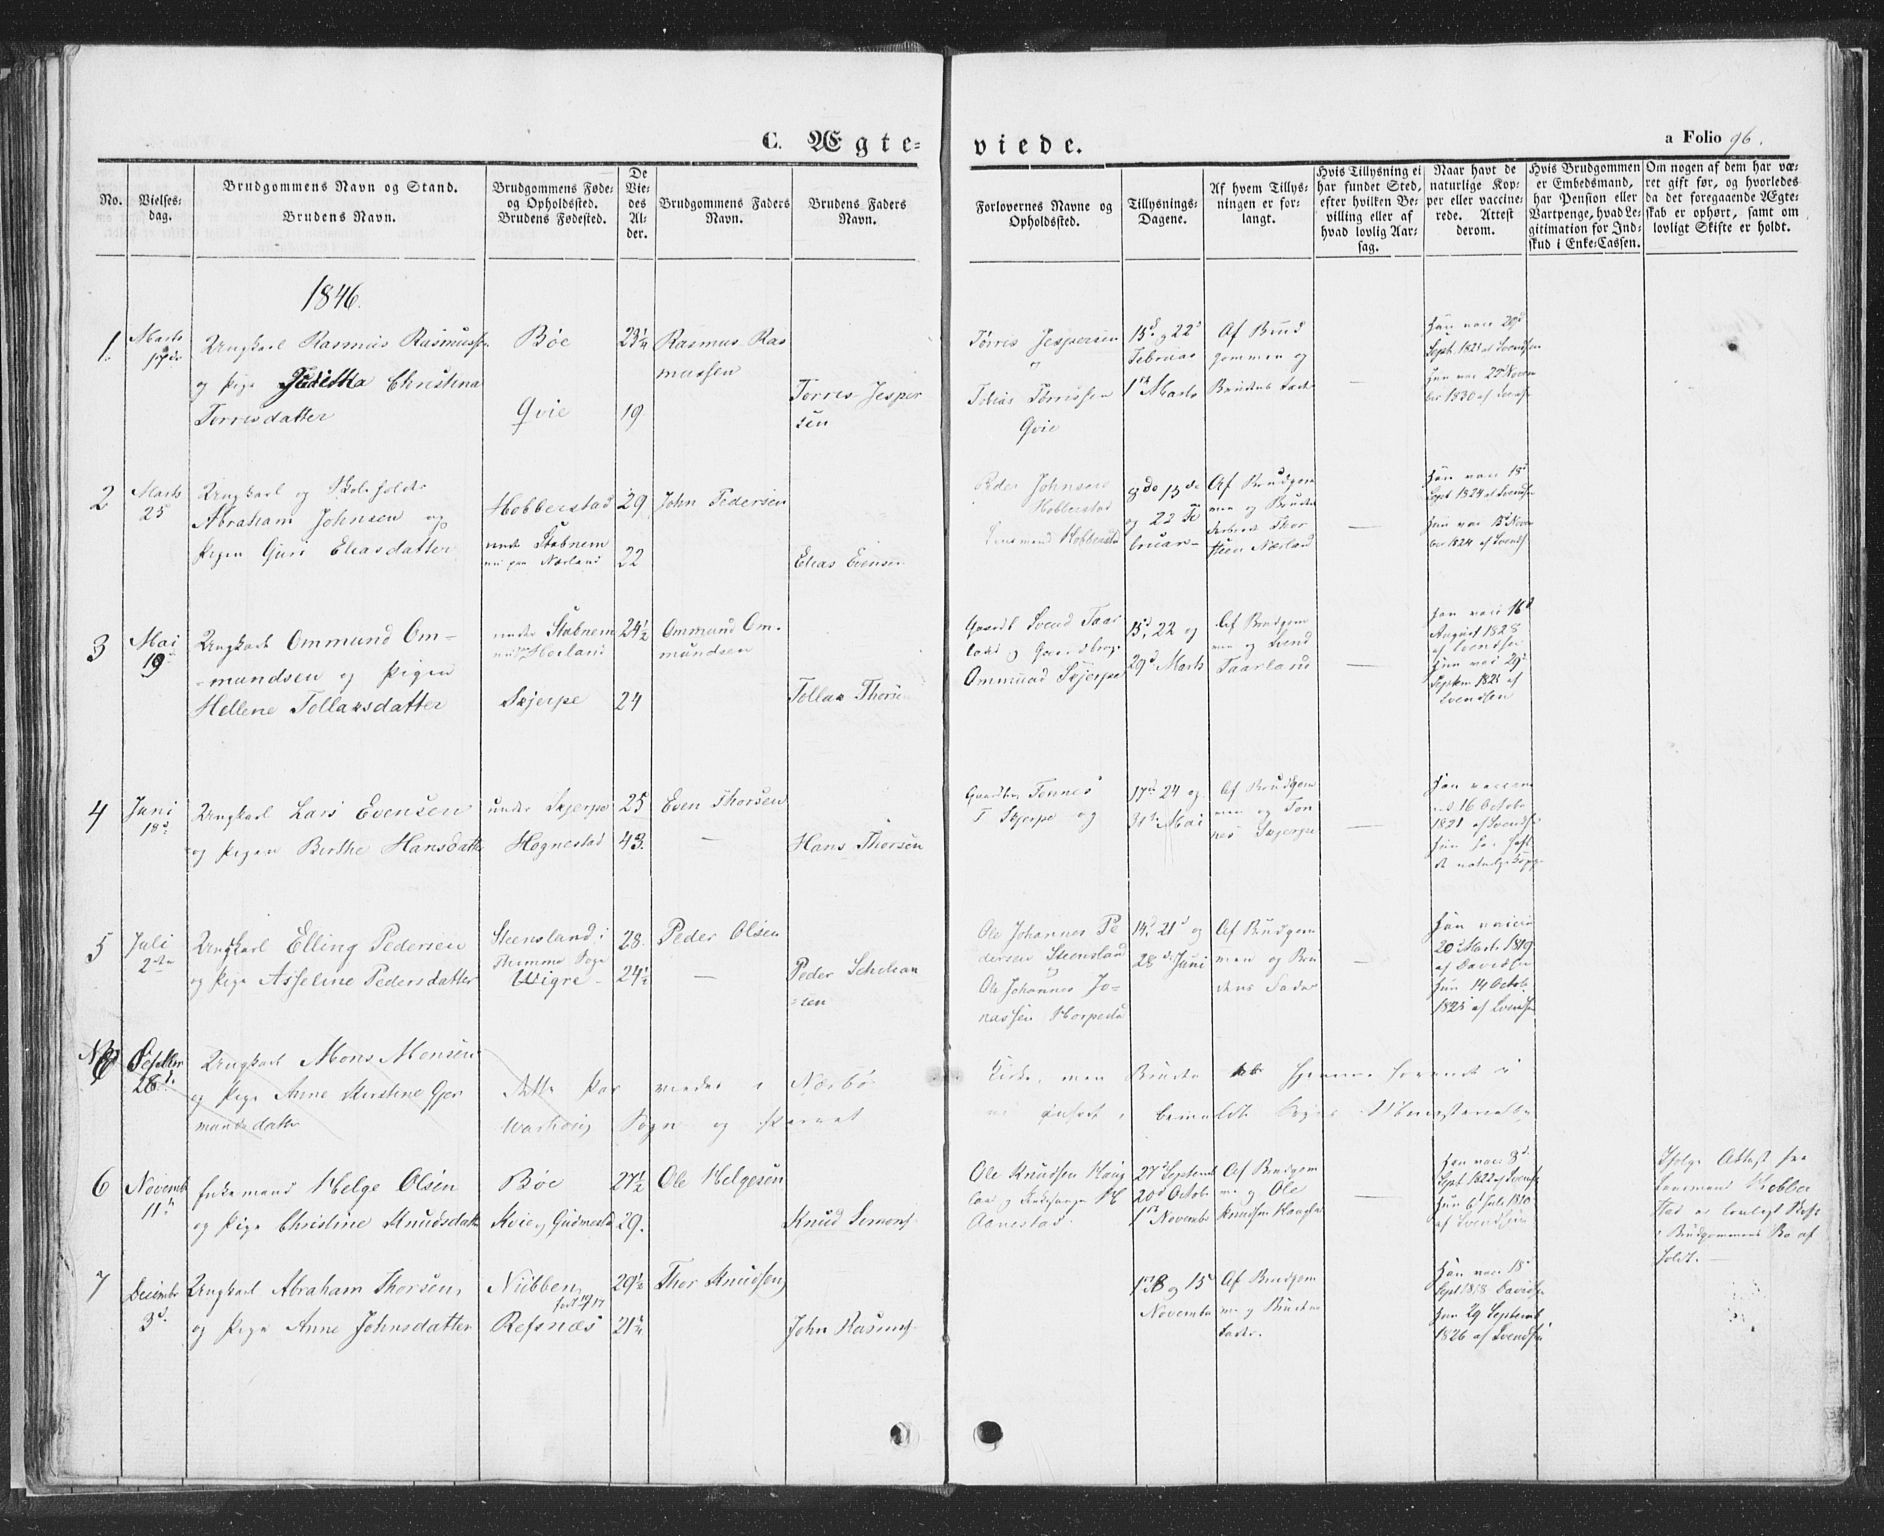 C. Ægte-
viede.
a Folio 96.
No.
Vielses-
dag.
Brudgommens Navn og Stand.
Brudens Navn.
Brudgommens Føde-
og Opholdsted.
Brudens Fødested.
De
Vie-
des
Al-
der.
Brudgommens Faders
Navn.
Brudens Faders
Navn.
Forlovernes Navne og
Opholdssted.
Tillysnings-
Dagene.
Af hvem Tillys-
ningen er for-
langt.
Hvis Tillysning ei
har fundet Sted,
efter hvilken Be-
villing eller af
hvad lovlig Aar-
sag.
Naar havt de
naturlige Kop-
per eller vaccine-
rede. Attest
derom.
Hvis Brudgommen
er Embedsmand,
har Pension eller
Vartpenge, hvad Le-
gitimation for Ind-
skud i Enke-Cassen.
Om nogen af dem har væ-
ret gift før, og hvorledes
da det foregaaende Ægte-
skab er ophørt, samt om
lovligt Skifte er holdt.
1846.
1.
Marts
17de
Ungkarl Rasmus Rasmussen
og Pige Juditha Christina
Torrisdatter
Bøe
Qvie
23¼
19
Rasmus Ras
mussen
Torris Jesper
sen
Tørris Jespersen
og
Tobias Tørrissen
Qvie
15d. og 22d
Februar
1ste Marts
Af Brud
gommen og
Brudens Fader
Han vac 20d
Sept. 1823 af Svendsen
hun vac 25 Novem
ber 1830 af Svends
2
Marts
25
Ungkarl og Skoleholder
Abraham Johnsen og
Pigen Guri Eliasdatter
Hobberstad
under Stabnem
nu paa Nærland
29
22
John Pedersen
Elias Evensen
Peder Johnsen
Hobberstad
Lensmand Hobberstad
8de 15de
og 22 Fe
bruar
Af Brudgom
men og Brudens
Forlover Thor
steen Nærland
Han vac 15d
Sept 1824 af Svendsen
hun vac 15d Novem
ber 1824 af Svends
3
Mai
19
Ungkarl Ommund Om-
mundsen og Pigen
Hellene Tollaksdatter
under Stabnem
Skjerpe
24½
24
Ommund Om-
mundsen
Tollak Thorsen
Gaardb Svend Taar
land og Gaardbrug
Ommund Skjerpe
15d, 22 og
29d Marts
Af Brudgom
men og Svend
Taarland
Han vac 16d
August 1828
af Svendsen
hun vac 29d
Septem 1825 af
Svendsen
4
Juni
18d
Ungkarl Lars Evensen
og Pigen Berthe Hansdatter
under Skjerpe
Hognestad
25
43.
Even Thorsen
Hans Thorsen
Gaardbr. Tønnes
T Skjerpe og
17de 24 og
31te Mai
Af Brudgom
men og Tøn
nes Skjerpe
Han vaccine
red 16 Octobr
1821 af Svendsen
hun har haft
de naturlige Kopper
5
Juli
2den
Ungkarl Elling Pedersen
og Pige Asseline Pedersdatter
Steensland i
Thimme Sogn
Wigre
28.
24½
Peder Olsen
Peder Schelian
sen
Ole Johannes Pe
dersen Steensland
og
Ole Johannes Jo-
nassen Horpestad
14d. 21d og
28d Juni
Af Brudgom
men og Bru
dens Fader
Han vaccin
20d Marts 1819
af Davidsen
hun 14 Octob
1825 af Svendsen
Septbr
28d.
Ungkarl Mons Monsen
og Pige Anne Kirstine Gjer
mundsdatter
Dette Par viedes i Nærbø
Kirke, men Bruden
Warhoug Sogn og
6
Novembr
11te
Enkemand Helge Olsen
og Pige Christine Knudsdatter
Bøe
Kvie, Gudmestad
27½
29.
Ole Helgesen
Knud Semons
Ole Knudsen Haug
Aanestad.
27d Septemb
20d Octobr
1ste Novembr
Af Brudgom
men og Ole
Knudsen Haugland
Han vac 8d
Sept 1822 af Svendsen
hun 6d Juli 1820
af Svendsen
Ifølge Attest fra
Lensmand Hobber
stad er lovligt Skift
i Brudgommens Bo af
holdt. —
7
Decembr
3d.
Ungkarl Abraham Thorsen,
og Pige Anne Johnsdatter
Nubben
Refsnæs
29½
21¾
Thor Knudsen
John Rasmus
1ste 8 og 15
Novembr
Af Brudgom
men og Brudens
Fader.
Han vac 15d
Sept 1818 Davidsen
hun 29 Septemb
1826 af Svendsen